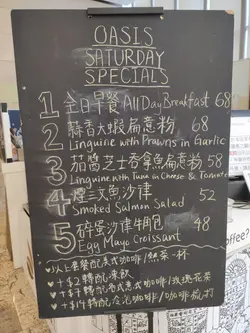 OASIS
SATURDAY
SPECIALS
1 全日早餐 All Day Breakfast 68
2 蒜香大蝦扁意粉 68
Linguine with Prawns in Garlic
3 茄醬芝士吞拿魚扁意粉 58
Linguine with Tuna in Cheese & Tomato
4 煙三文魚沙律 52
Smoked Salmon Salad
5 碎蛋沙律牛角包 48
Egg Mayo Croissant
以上套餐配美式咖啡/熱茶一杯
+$2轉配凍飲